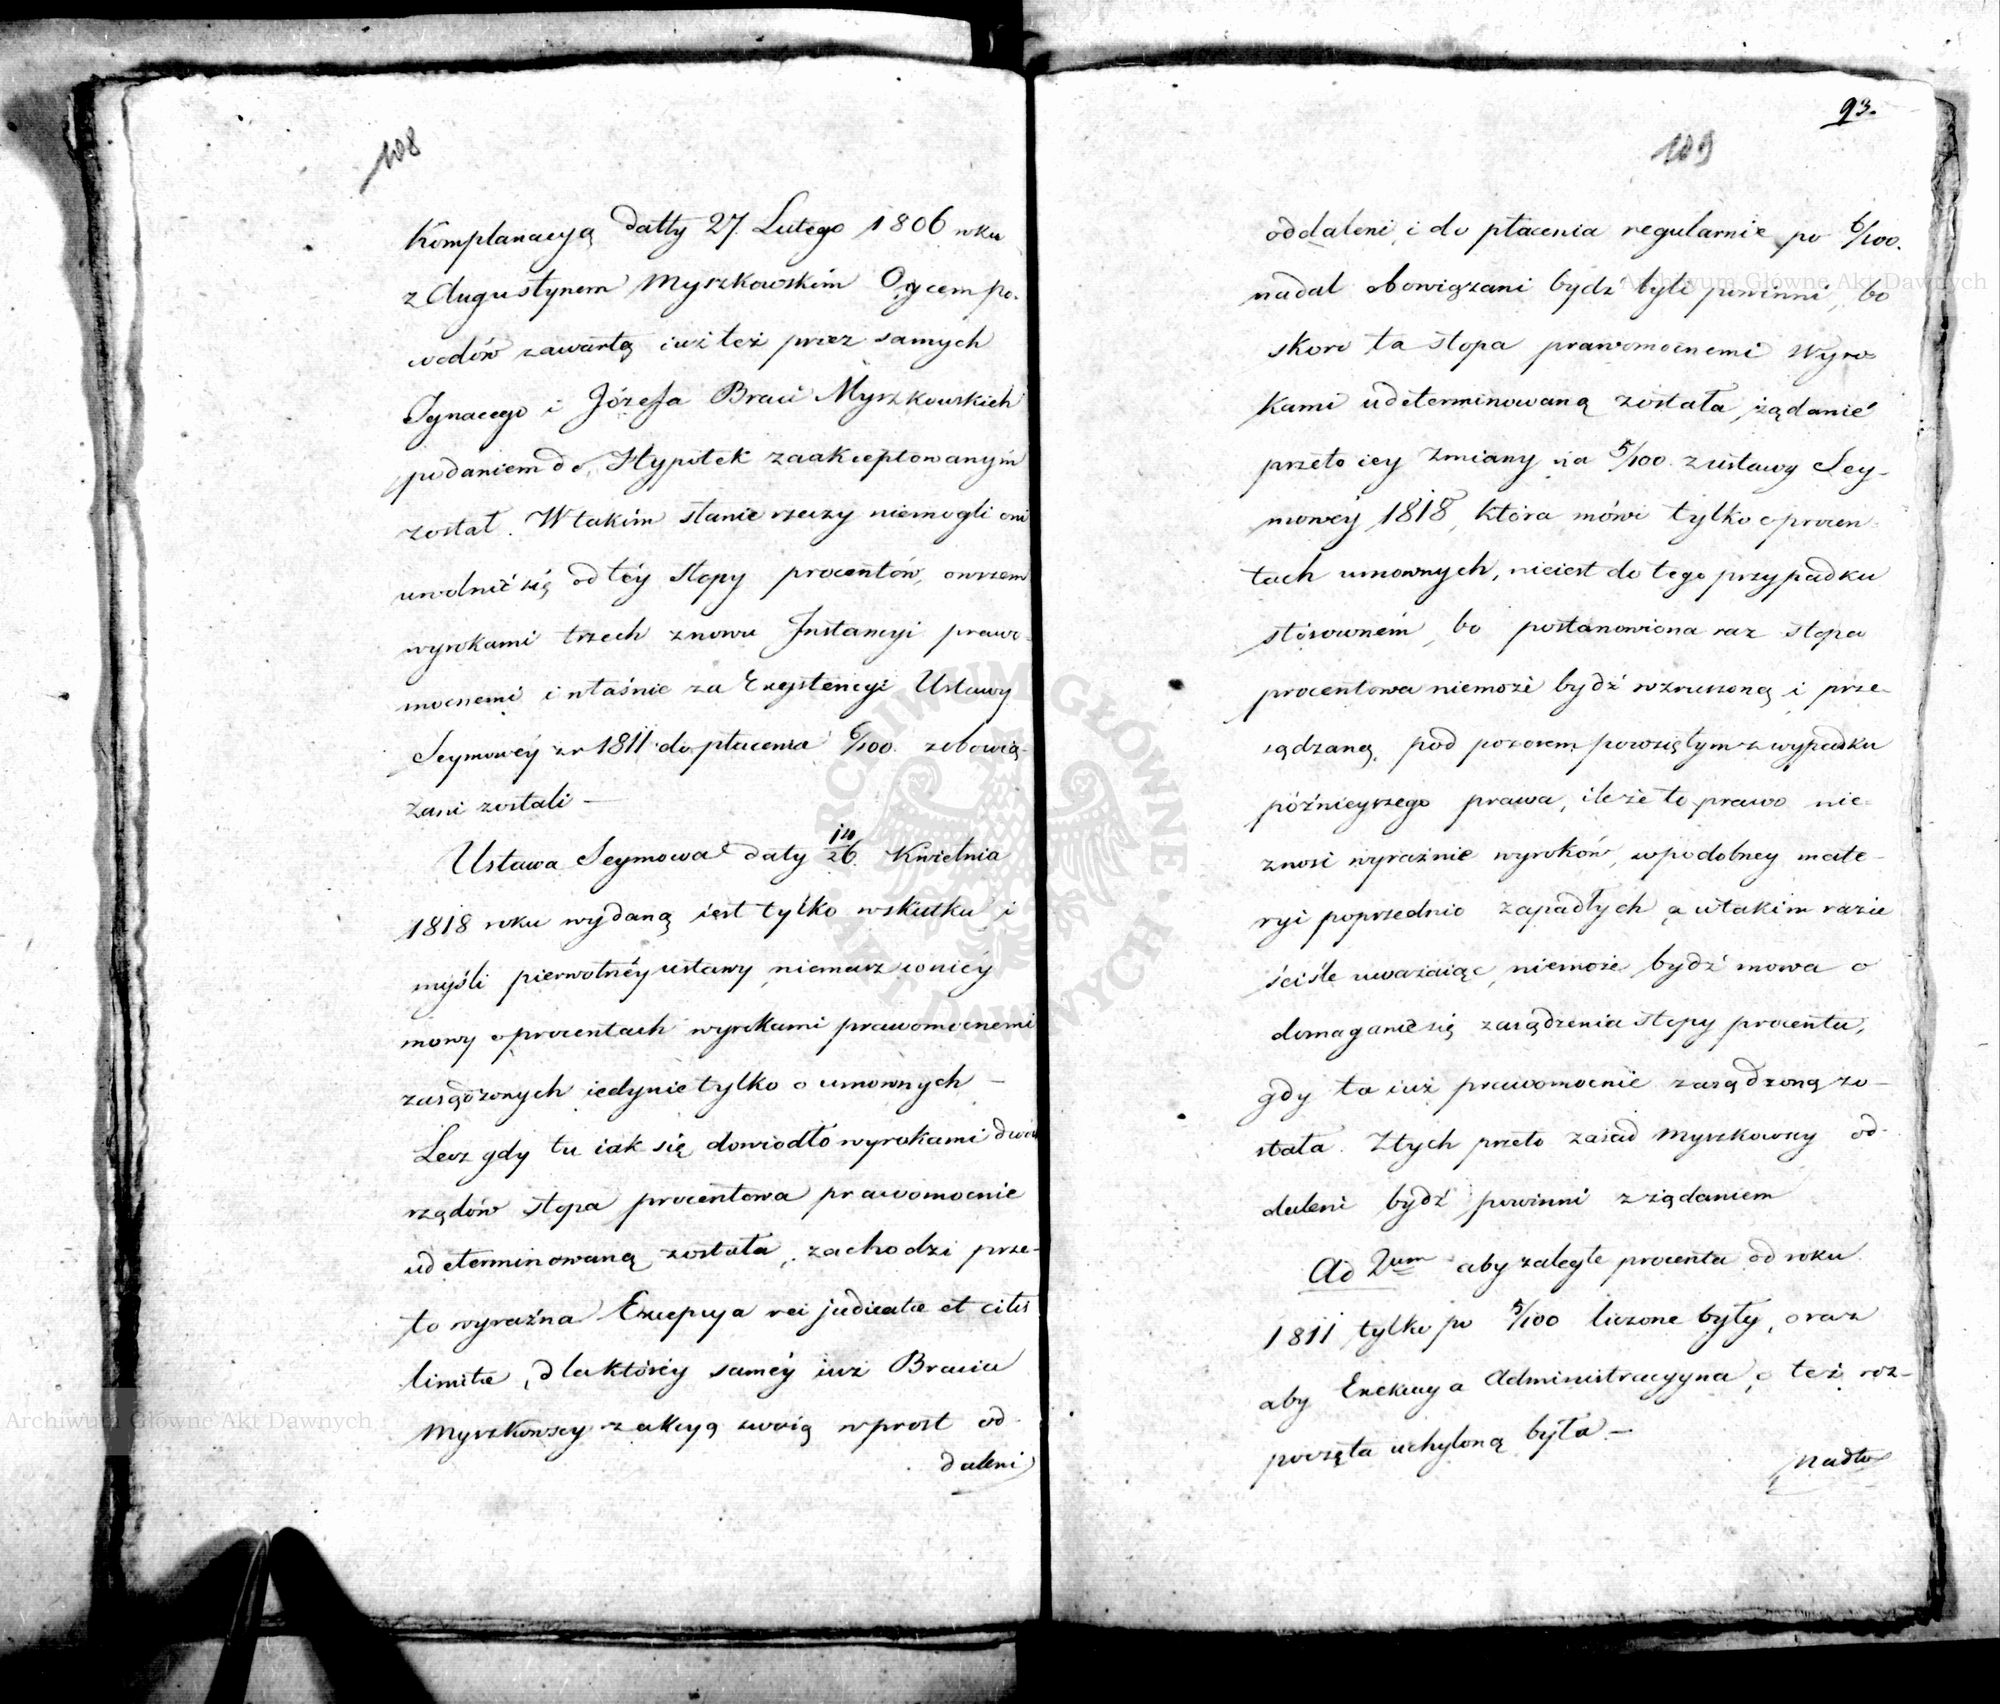 108
Komplanacyą datty 27. Lutego 1806 roku
z Augustynem Myszkowskim Oycem po-
wodów zawartą iuż też przez samych
Ignacego i Józefa Braci Myszkowskich
podaniem do Hypotek zaakceptowanym
został. W takim stanie rzeczy niemogli oni
uwolnić się od téy stopy procentów, owszem
wyrokami trzech znowu Instancyi prawo-
mocnemi i właśnie za Exystencyi Ustawy
Seymowéy z r 1811 do płacenia 6/100. zobowią-
zani zostali —
Ustawa Seymowa daty 14/26. Kwietnia
1818 roku wydaną iest tylko w skutku i
myśli pierwotnéy ustawy, niemasz w niéy
mowy o procentach wyrokami prawomocnemi
zasądzonych iedynie tylko o umownych —
Lecz gdy tu iak się dowiodło wyrokami dwu
rządów stopa procentowa prawomocnie
udeterminowaną została, zachodzi prze-
to wyraźna Excepcya rei judicatæ et litis
limitæ, dla któréy saméy iuż Bracia
Myszkowscy z akcyą swoią wprost od-
daleni
93.
109
oddaleni i do płacenia regularnie po 6/100.
nadal obowiązani bydź byli powinni, bo
skoro ta stopa prawomocnemi Wyro-
kami udeterminowaną została, żądanie
przeto iey zmiany na 5/100. z ustawy Sey-
mowéy 1818, która mówi tylko o procen-
tach umownych, nieiest do tego przypadku
stósowném, bo postanowiona raz stopa
procentowa niemoże bydź wzruszoną i prze-
sądzaną, pod pozorem powziętym z wypadku
późnieyszego prawa, ile że to prawo nie-
znosi wyraźnie wyroków, w podobney mate-
ryi poprzednio zapadłych a w takim razie
ściśle uważaiąc, niemoże bydź mowa o
domaganie się zasądzenia stopy procentu,
gdy ta iuż prawomocnie zasądzoną zo-
stała. Z tych przeto zasad Myszkowscy od-
daleni bydź powinni z żądaniem
Ad 2um aby zaległe procenta od roku
1811 tylko po 5/100 liczone były, oraz
aby Exekucya Administracyyna o też roz-
poczęta uchyloną była —
Nadto
Archiwum Główne Akt Dawnych
Archiwum Główne Akt Dawnych
ARCHIWUM GŁÓWNE AKT DAWNYCH